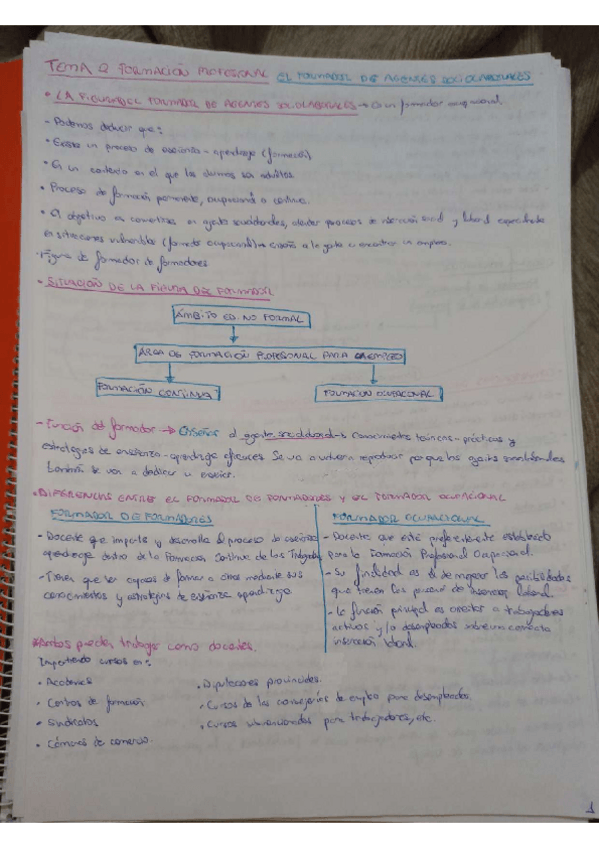 TEMA 2 FORMACIÓN PROFESIONAL EL FORMADOR DE AGENTES SOCIOLABORALES
• LA FIGURA DEL FORMADOR DE AGENTES SOCIOLABORALES → Es un formador ocupacional.
- Podemos deducir que:
• Existe un proceso de enseñanza-aprendizaje (formación)
• Es un contexto en el que los alumnos son adultos.
• Proceso de formación permanente, ocupacional o continua.
• El objetivo es convertirse en agente sociolaborales, atender procesos de inserción social y laboral especialmente
en situaciones vulnerables (formador ocupacional) → enseña a la gente a encontrar un empleo.
- Figura de formador de formadores
• SITUACIÓN DE LA FIGURA DEL FORMADOR
ÁMBITO ED. NO FORMAL
ÁREA DE FORMACIÓN PROFESIONAL PARA EL EMPLEO
FORMACIÓN CONTINUA
FORMACIÓN OCUPACIONAL
- Función del formador → Enseñar al agente sociolaboral → conocimientos teóricos-prácticos y
estrategias de enseñanza-aprendizaje eficaces Se va a volver a reproducir porque los agentes sociolaborales
también se van a dedicar a enseñar.
• DIFERENCIAS ENTRE EL FORMADOR DE FORMADORES Y EL FORMADOR OCUPACIONAL
FORMADOR DE FORMADORES
- Docente que imparte y desarrolla el proceso de enseñanza
aprendizaje dentro de la Formación Continua de los Trabajad
- Tienen que ser capaces de formar a otros mediante sus
conocimientos y estrategias de enseñanza aprendizaje.
FORMADOR OCUPACIONAL
- Docente que está preferentemente establecido
para la Formación Profesional Ocupacional.
- Su finalidad es el de mejorar las posibilidades
que tienen las personas de inserción laboral.
- La función principal es orientar a trabajadores
activos y/o desempleados sobre una correcta
inserción laboral.
Ambos pueden trabajar como docentes.
Impartiendo cursos en:
• Academias
• Centros de formación
• Sindicatos
• Cámaras de comercio.
• Diputaciones provinciales.
• Cursos de las consejerías de empleo para desempleados.
• Cursos subvencionados para trabajadores, etc.
1